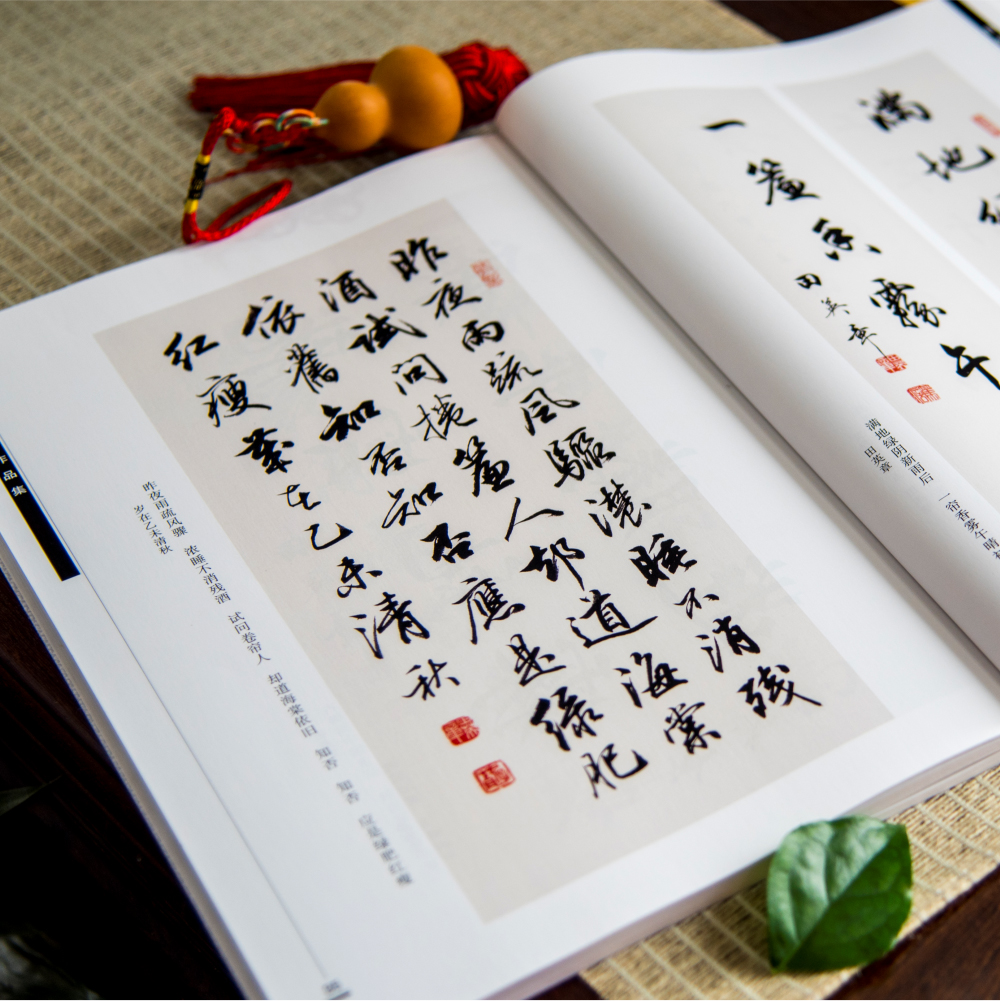 满地绿
一簾香霧午
田英章
满地绿阴新雨后 一帘香雾午晴
田英章
昨夜雨疏风骤濃睡不消残
酒试问捲簾人却道海棠
依舊知否知否應是绿肥
红瘦歲在乙未清秋
昨夜雨疏风骤 浓睡不消残酒 试问卷帘人 却道海棠依旧 知否 知否 应是绿肥红瘦
岁在乙未清秋
作品集